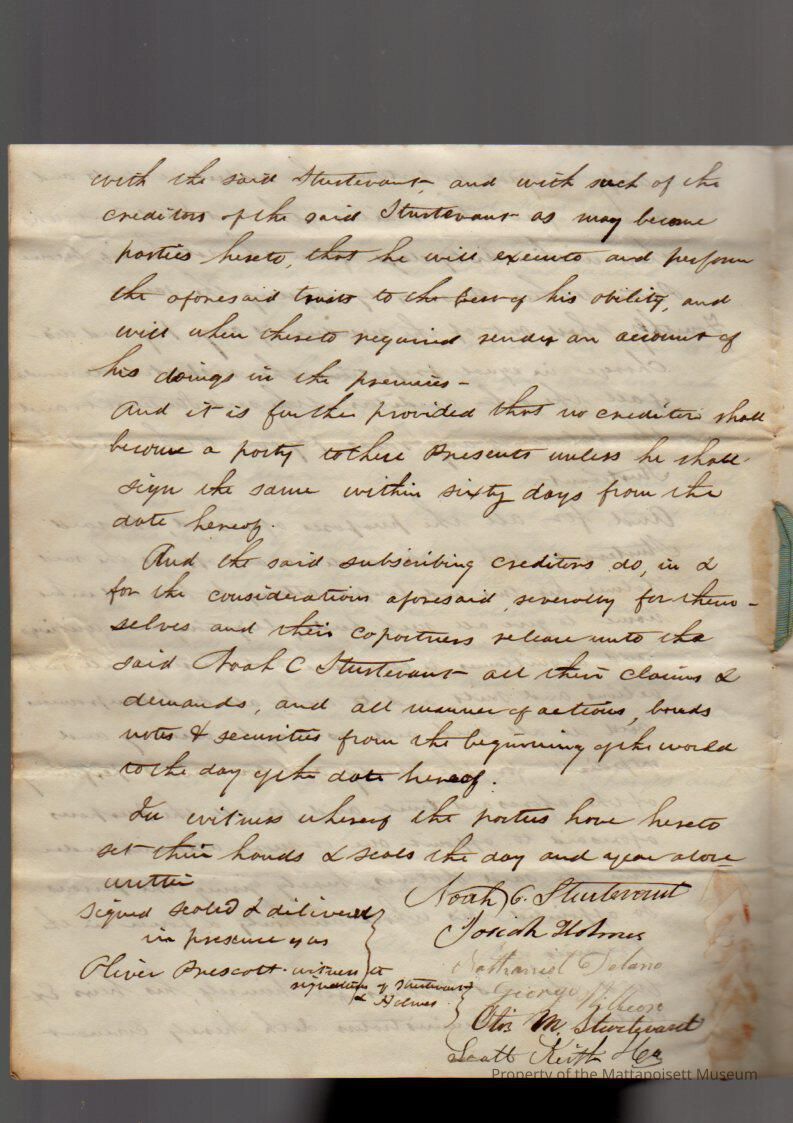 with the said Sturtevant, and with such of the
creditors of the said Sturtevant as may become
parties hereto, that he will execute and perform
the aforesaid trust to the best of his ability, and
will when thereto required render an account of
his doings in the premises -
And it is further provided that no creditor shall
become a party to these Presents unless he shall
sign the same within sixty days from the
date hereof.
And the said subscribing creditors do, in &
for the considerations aforesaid, severally for them-
selves and their copartners release unto the
said Noah C Sturtevant all their claims &
demands, and all manner of actions, bonds
notes & securities from the beginning of the world
to the day of the date hereof.
In witness whereof the parties have hereto
set their hands & seals the day and year above
written
Signed sealed & delivered
in presence of us
Oliver Prescott witness to
signatures of Sturtevant
& Holmes
Noah C. Sturtevant
Josiah Holmes
Nathaniel Delano
George
Otis M. Sturtevant
Scott Keith & Co
Property of the Mattapoisett Museum